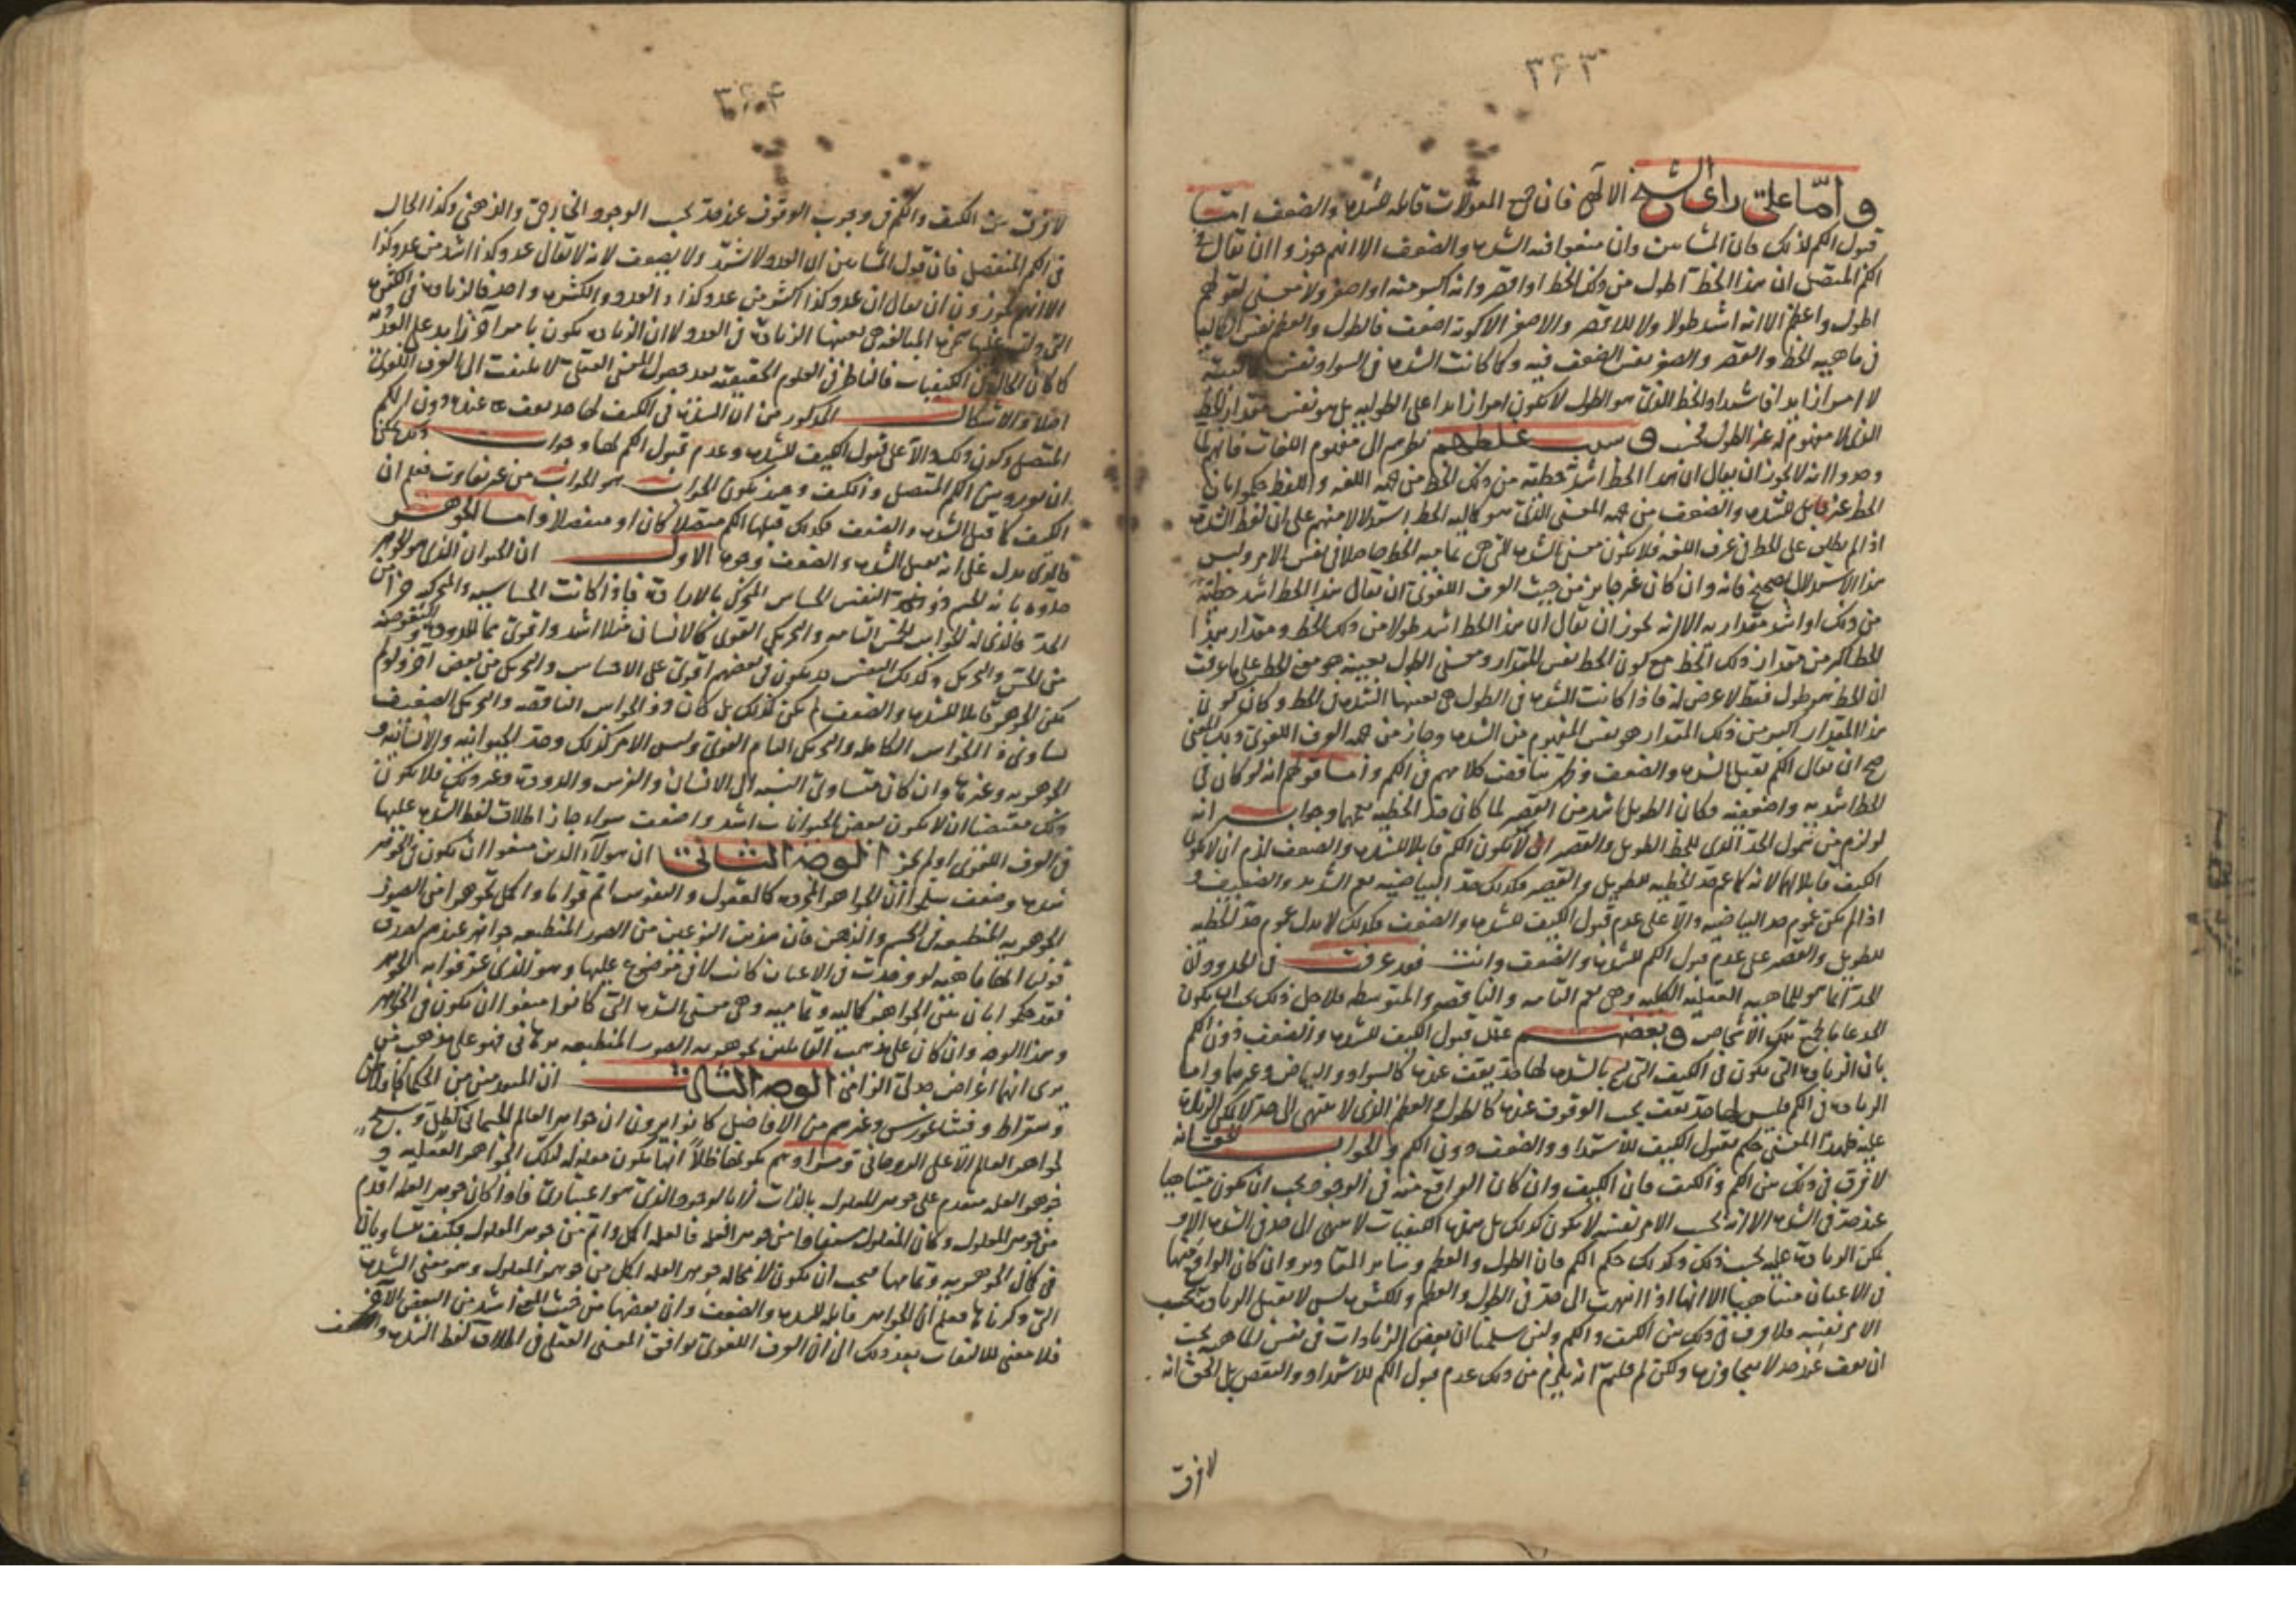 ٣٦٣
واما على راى الشيخ الالهى فان جميع المقولات قابله للشده والضعف اما
قبول الكم لذلك فان المشائين وان منعوا فيه الشده والضعف الا انهم جوزوا ان يقال فى
الكم المتصل ان هذا الخط اطول من ذلك الخط او اقصر وانه اكبر منه او اصغر ولا معنى لقولهم
اطول واعظم الا انه اشد طولا ولا للاقصر والاصغر الا كونه اضعف فالطول والعظم نفس الكماليه
فى ماهيه الخط والقصر والصغر نفس الضعف فيه وكما كانت الشده فى السواد نفس
لا امر ازايدا فاشتداد الخط الذى هو الطول لا يكون امرا زايدا على الطوليه بل هو نفس مقدار الخط
الذى لا مفهوم له غير الطول وسبب غلطهم نظرهم الى مفهوم اللغات فانهم لما
وجدوا انه لا يجوز ان يقال ان هذا الخط اشد خطيه من ذلك الخط من جهه اللغه واللفظ حكموا بان
الخط غير قابل للشده والضعف من جهه المعنى الذى هو كماليه الخط استدلالا منهم على ان لفظ الشده
اذا لم يطلق على الخط فى عرف اللغه فلا يكون معنى الشده التى هى تماميه الخط حاصلا فى نفس الامر وليس
هذا الاستدلال بصحيح فانه وان كان غير جايز من حيث العرف اللغوى ان يقال هذا الخط اشد خطيه
من ذلك او اشد مقداريه الا انه يجوز ان يقال ان هذا الخط اشد طولا من ذلك الخط ومقدار هذا
الخط اكبر من مقدار ذلك الخط مع كون الخط نفس المقدار ومعنى الطول بعينه هو معنى الخط على ما عرفت
ان الخط هو طول فقط لا عرض له فاذا كانت الشده فى الطول هى بعينها الشده فى الخط وكان كون
هذا المقدار اكبر من ذلك المقدار هو نفس المفهوم من الشده وجاز من جهه العرف اللغوى ذلك
صح ان يقال الكم يقبل الشده والضعف وظهر تناقض كلامهم فى الكم واما قولهم انه لو كان فى
الخط اشديه واضعفيه وكان الطويل اشد من القصير لما كان حد الخطيه يعمهما وجوابه انه
لو لزم من شمول الحد الذى للخط الطويل والقصير ان لا يكون الكم قابلا للشده والضعف لزم ان لا يكون
الكيف قابلا لهما لانه كما عم حد الخطيه للطويل والقصير فكذلك حد البياضيه يعم الشديد والضعيف و
اذا لم يكن عموم حد البياضيه دالا على عدم قبول الكيف للشده والضعف فكذلك لا يدل عموم حد الخطيه
للطويل والقصير على عدم قبول الكم للشده والضعف وانت فقد عرفت فى الحدود ان
الحد انما هو للماهيه العقليه الكليه وهى تعم التامه والناقصه والمتوسطه فلاجل ذلك يجب ان يكون
الحد عاما لجميع تلك الاشخاص وبعضهم علل قبول الكيف للشده والضعف دون الكم
بان الزياده التى تكون فى الكيف التى بالشده لها حد يقف عنده كالسواد والبياض وغيرهما واما
الزياده فى الكم فليس لها حد يقف يجب الوقوف عنده كالطول والعظم الذى لا ينتهى الى حد لا يمكن الزياده
عليه فلهذا المعنى حكم بقبول الكيف للاشتداد والضعف دون الكم والجواب انه
لا فرق فى ذلك بين الكم والكيف فان الكيف وان كان الواقع منه فى الوجود يجب ان يكون متناهيا
عند حد فى الشده الا انه بحسب الامر نفسه لا يكون كذلك بل هذه الكيفيات لا ينتهى الى حد فى الشده الا و
يمكن الزياده عليه بحسب ذلك وكذلك حكم الكم فان الطول والعظم وساير المقادير وان كان الواقع منها
فى الاعيان متناهيا الا انها اذا انتهت الى حد فى الطول والعظم والكثره ليس لا يقبل الزياده بحسب
الامر نفسه فلا فرق فى ذلك بين الكيف والكم ولئن سلمنا ان بعض الزيادات فى نفس الماهيه يجب
ان يقف عند حد لا يتجاوزه ولكن لم قلتم انه يلزم من ذلك عدم قبول الكم للاشتداد والنقص بل الحق انه
لا فرق
٣٦٤
لا فرق بين الكيف والكم فى وجوب الوقوف عند حد بحسب الوجود الخارجى والذهنى وكذا الحال
فى الكم المنفصل فان قول المشائين ان العدد لا يشتد ولا يضعف لانه لا يقال عدد كذا اشد من عدد كذا
الا انهم يجوزون ان يقال ان عدد كذا اكثر من عدد كذا والعدد والكثره واحد فالزياده فى الكثره
التى دلت عليها المبالغه هى بعينها الزياده فى العدد لا ان الزياده يكون بامر آخر زايد على العدديه
كما كان الحال فى الكيفيات فالناظر فى العلوم الحقيقيه بعد حصول المعنى العقلى لا يلتفت الى العرف اللغوى
اصلا والاشكال المذكور من ان الشده فى الكيف لها حد يقف عنده دون الكم
المتصل وكون ذلك دالا على قبول الكيف للشده وعدم قبول الكم لها وجوابه
ان يورد بين الكم المتصل والكيف وهذا يكون الجواب هو الجواب من غير تفاوت فعلم ان
الكيف كما قبل الشده والضعف فكذلك قبلها الكم متصلا كان او منفصلا واما الجوهر
فالذى يدل على انه يقبل الشده والضعف وجوه الاول ان الحيوان الذى هو الجوهر
حدوه بانه الجسم ذو النفس الحساس المتحرك بالاراده فاذا كانت الحساسيه والمتحركيه جزأ من
الحد فالذى له الحواس الخمس التامه والتحريك القوى كالانسان مثلا اشد واقوى مما للدوده
من الحس والتحريك وكذلك النفس قد يكون فى بعضهم اقوى على الاحساس والتحريك من بعض آخر ولو لم
يكن الجوهر قابلا للشده والضعف لم يكن كذلك بل كان ذو الحواس الناقصه والتحريك الضعيف
يساوى ذا الحواس الكامله والتحريك التام القوى وليس الامر كذلك وحد الحيوانيه والانسانيه و
الجوهريه وغيرها وان كان متساوى النسبه الى الانسان والفرس والدوده وغير ذلك فلا يكون
ذلك مقتضيا ان لا يكون بعض الحيوانات اشد واضعف سواء جاز اطلاق لفظ الشده عليها
فى العرف اللغوى او لم يجز الوجه الثانى ان هولآء الذين منعوا ان يكون فى الجوهر
شده وضعف سلموا ان الجواهر المجرده كالعقول والنفوس اتم قواما واكمل تجوهرا من الصور
الجوهريه المنطبعه فى الجسم والذهن فان هذين النوعين من الصور المنطبعه جواهر عندهم لصدق
قولنا انها ماهيه لو وجدت فى الاعيان كانت لا فى موضوع عليها وهو الذى عرفوا به الجوهر
فقد حكموا بان بين الجواهر كماليه وتماميه وهى معنى الشده التى كانوا منعوا ان يكون فى الجواهر
وهذا الوجه وان كان على مذهب القائلين بجوهريه الصور المنطبعه برهانى فهو على مذهب من
يرى انها اعراض جدلى الزامى الوجه الثالث ان المتقدمين من الحكما كافلاطن
وسقراط وفيثاغورس وغيرهم من الافاضل كانوا يرون ان جواهر العالم الجسمانى كظل
لجواهر العالم الاعلى الروحانى ومرادهم بكونها ظلا انها يكون معلوله لتلك الجواهر العقليه و
جوهر العله متقدم على جوهر المعلول بالذات لا بالوجود الذى هو اعتبارى فاذا كان جوهر العله اقدم
من جوهر المعلول وكان المعلول مستفادا من جوهر العله فالعله اكمل واتم من جوهر المعلول فكيف يتساويان
فى كمال الجوهريه وتمامها فيجب ان يكون لا محاله جوهر العله اكمل من جوهر المعلول وهو معنى الشده
التى ذكرناها فعلم ان الجواهر قابله للشده والضعف وان بعضها من حيث اشد من البعض الآخر
فلا معنى للالتفات بعد ذلك الى ان العرف اللغوى يوافق المعنى العقلى فى اطلاق لفظ الشده والضعف